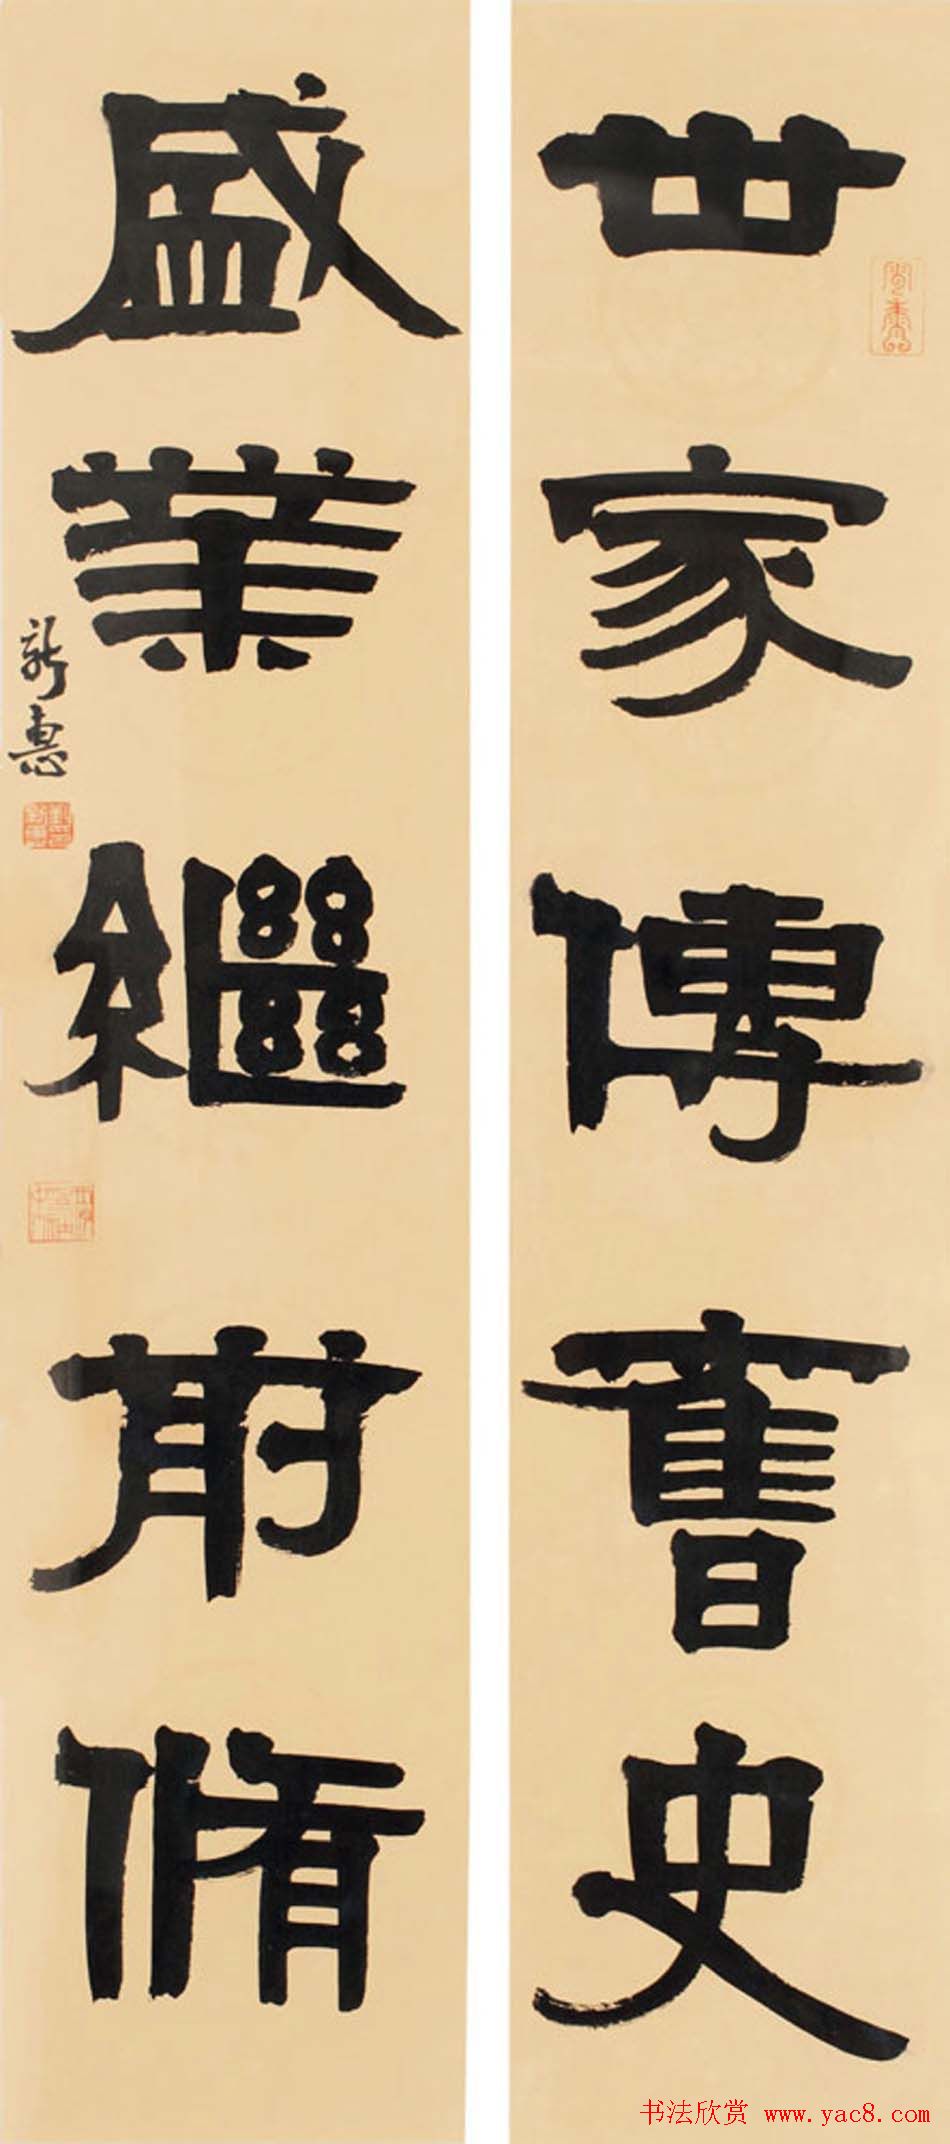 世家傳舊史
盛業繼前脩
新惠
书法欣赏 www.yac8.com